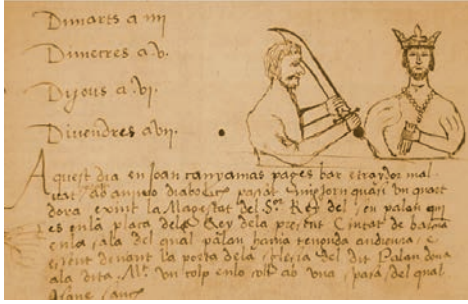 Dimarts a iiij
Dimecres a .v.
Dijous a .vj.
Divendres a vij.
Aquest dia en Joan canyamas pages bar e traydor mal
vat / ab animo diabolich pasat migjorn quasi un quart
dora exint la Magestat del Sor Rey del seu palau qui
es en la plaça del Rey dela present Ciutat de
en la sala del qual palau havia tenguda audiencia, e
essent devant la porta dela sglesia del dit Palau dona
ala dita Mt. un colp en lo coll ab una spasa del qual